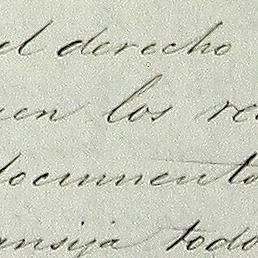 el derecho
en los re
documento
ansija todo